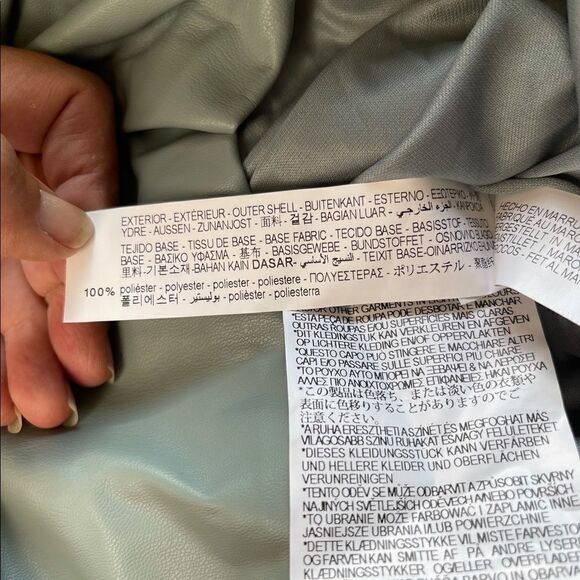 EXTERIOR - EXTÉRIEUR - OUTER SHELL - BUITENKANT - ESTERNO - ΕΞΩΤΕΡΙΚΟ
YDRE - AUSSEN - ZUNANJOST - 面料 - 겉감 - BAGIAN LUAR - الجزء الخارجي
TEJIDO BASE - TISSU DE BASE - BASE FABRIC - TECIDO BASE - BASISSTOF
BASE - ΒΑΣΙΚΟ ΥΦΑΣΜΑ - 基布 - BASISGEWEBE - BUNDSTOFFET - OSNOVNO
里料 - 기본소재 - BAHAN KAIN DASAR - النسيج الأساسي - TEIXIT BASE - OINARRIZKO
100% poliéster - polyester - polyester - poliéster - poliestere - ΠΟΛΥΕΣΤΕΡΑΣ - ポリエステル
폴리에스터 - بوليستير - polièster - poliesterra
HECHO EN
FABRIQUÉ AU
MADE IN
OTHER GARMENTS IN
*ESTA PEÇA DE ROUPA PODE DESBOTAR E MANCHAR
OUTRAS ROUPAS E/OU SUPERFÍCIES MAIS CLARAS
*DIT KLEDINGSTUK KAN VERKLEUREN EN AFGEVEN
OP LICHTERE KLEDING EN/OF OPPERVLAKTEN
*QUESTO CAPO PUÒ STINGERE E MACCHIARE ALTRI
CAPI E/O PASSARE SULLE SUPERFICI PIÙ CHIARE
*ΤΟ ΡΟΥΧΟ ΑΥΤΟ ΜΠΟΡΕΙ ΝΑ ΞΕΒΑΨΕΙ & ΝΑ ΛΕΡΩΣΕΙ
ΑΛΛΕΣ ΠΙΟ ΑΝΟΙΧΤΟΧΡΩΜΕΣ ΕΠΙΦΑΝΕΙΕΣ Η/ΚΑΙ ΡΟΥΧΑ
*この製品は色落ち、または淡い色の衣類や
表面に色移りすることがありますのでご
注意ください。
*A RUHA ERESZTHETI A SZÍNÉT ÉS MEGFOGHAT MÁS,
VILÁGOSABB SZÍNŰ RUHÁKAT ÉS/VAGY FELÜLETEKET
*DIESES KLEIDUNGSSTÜCK KANN VERFÄRBEN
UND HELLERE KLEIDER UND OBERFLÄCHEN
VERUNREINIGEN
*TENTO ODĚV SE MŮŽE ODBARVIT A ZPŮSOBIT SKVRNY
NA JINÝCH SVĚTLEJŠÍCH ODĚVECH A/NEBO POVRŠÍCH
*TO UBRANIE MOŻE FARBOWAĆ I ZAPLAMIĆ INNE
JAŚNIEJSZE UBRANIA I/LUB POWIERZCHNIE
*DETTE KLÆDNINGSSTYKKE VIL MISTE FARVESTOF
OG FARVEN KAN SMITTE AF PÅ ANDRE LYSERE
KLÆDNINGSSTYKKER OG/ELLER OVERFLADER